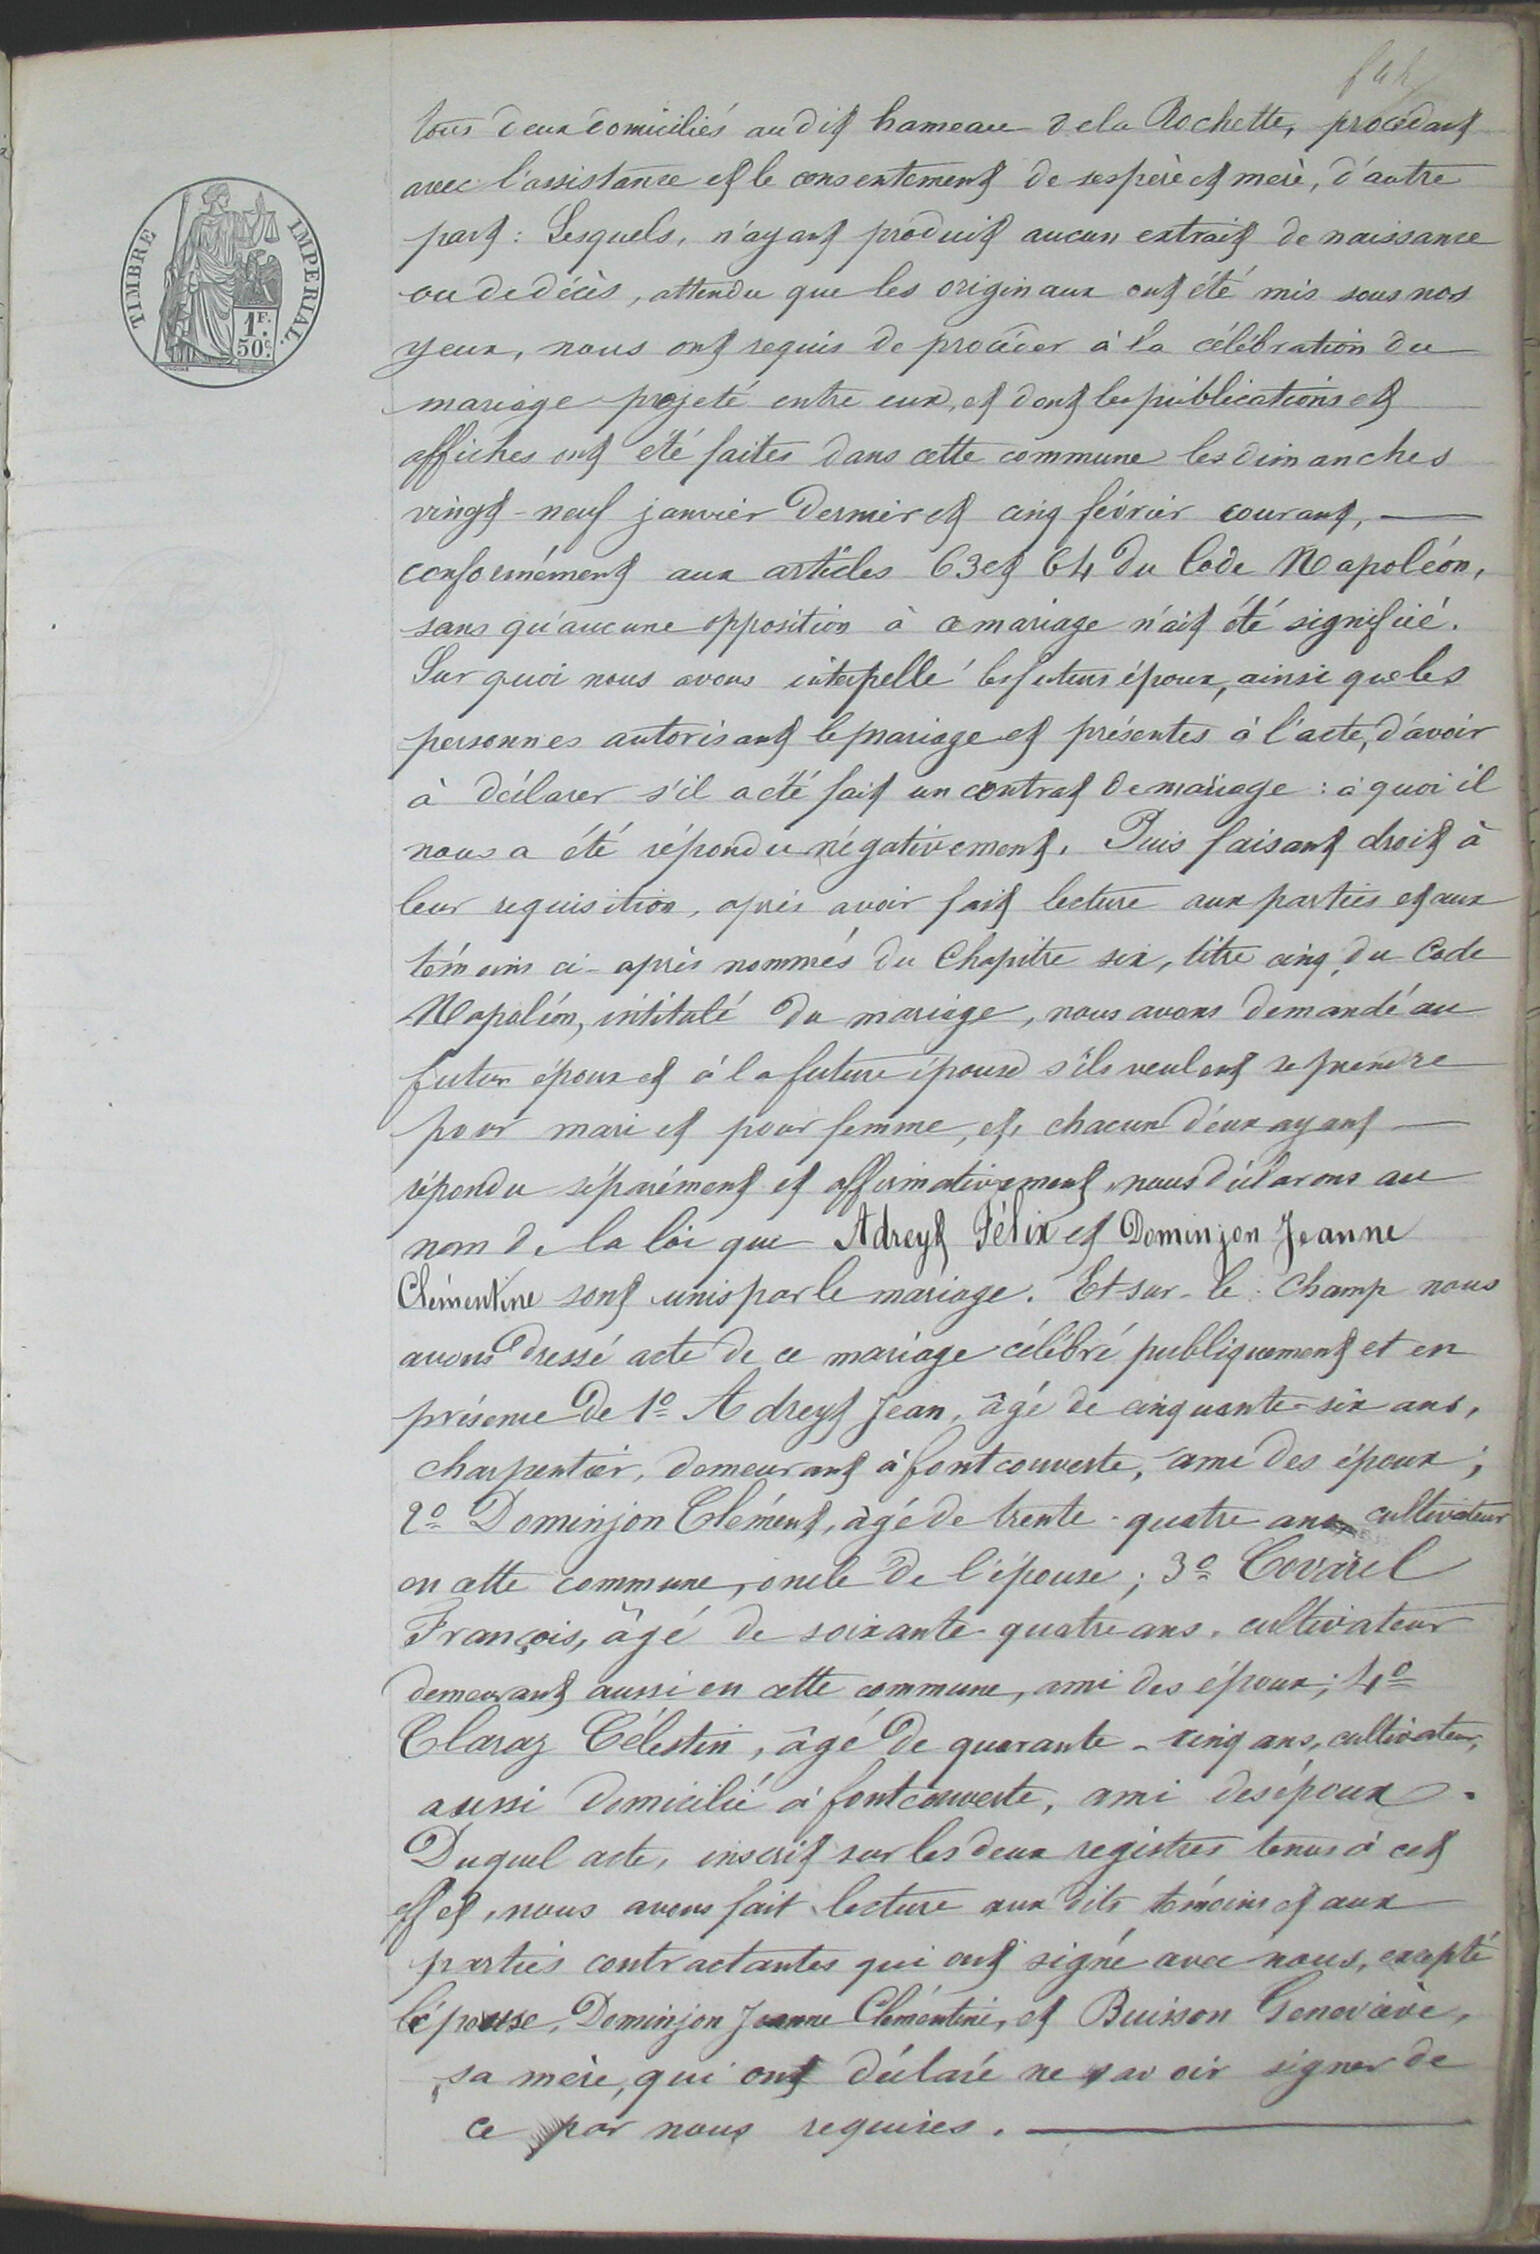 TIMBRE IMPERIAL.
1F.
50c.
tous deux domiciliés audit hameau de la Rochette, procédant
avec l'assistance et le consentement de ses père et mère, d'autre
part : Lesquels, n'ayant produit aucun extrait de naissance
ou de décès, attendu que les originaux ont été mis sous nos
yeux, nous ont requis de procéder à la célébration du
mariage projeté entre eux, et dont les publications et
affiches ont été faites dans cette commune les dimanches
vingt-neuf janvier dernier et cinq février courant, —
conformément aux articles 63 et 64 du Code Napoléon,
sans qu'aucune opposition à ce mariage n'ait été signifiée.
Sur quoi nous avons interpellé les futurs époux, ainsi que les
personnes autorisant le mariage et présentes à l'acte, d'avoir
à déclarer s'il a été fait un contrat de mariage : à quoi il
nous a été répondu négativement. Puis faisant droit à
leur requisition, après avoir fait lecture aux parties et aux
témoins ci-après nommés du Chapitre six, titre cinq, du Code
Napoléon, intitulé du mariage, nous avons demandé au
futur époux et à la future épouse s'ils veulent se prendre
pour mari et pour femme, et, chacun d'eux ayant —
répondu séparément et affirmativement, nous déclarons au
nom de la loi que Adreyt Félix et Dominjon Jeanne
Clémentine sont unis par le mariage. Et sur-le-champ nous
avons dressé acte de ce mariage célébré publiquement et en
présence de 1º Adreyt Jean, âgé de cinquante-six ans,
charpentier, demeurant à fontcouverte, ami des époux;
2º Dominjon Clément, âgé de trente-quatre ans cultivateur
en cette commune, oncle de l'épouse; 3º Covarel
François, âgé de soixante-quatre ans, cultivateur
demeurant aussi en cette commune, ami des époux; 4º
Claraz Célestin, âgé de quarante-cinq ans, cultivateur,
aussi domicilié à fontcouverte, ami des époux.
Duquel acte, inscrit sur les deux registres tenus à cet
effet, nous avons fait lecture aux dits témoins et aux
parties contractantes qui ont signé avec nous, excepté
l'épouse, Dominjon Jeanne Clémentine, et Buisson Geneviève,
sa mère, qui ont déclaré ne savoir signer de
ce par nous requises. —